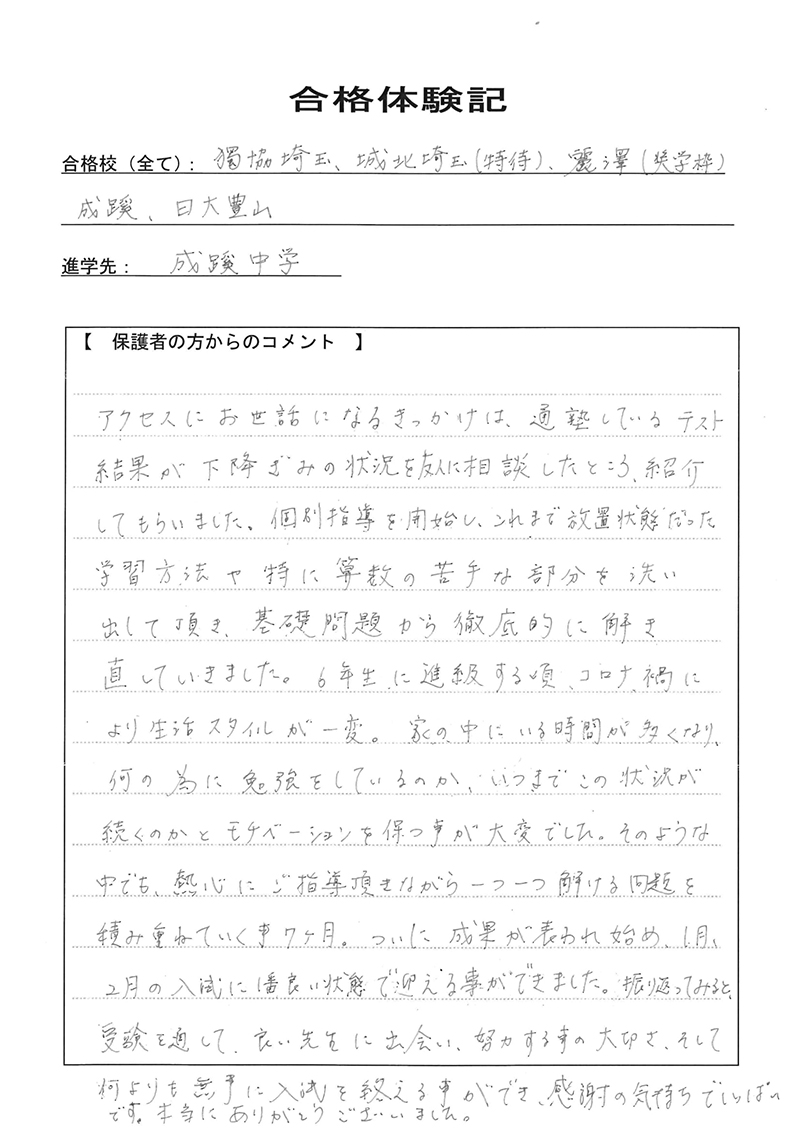 合格体験記
合格校（全て）： 獨協埼玉、城北埼玉(特待)、麗澤(奨学枠)
成蹊、日大豊山
進学先： 成蹊中学
【 保護者の方からのコメント 】
アクセスにお世話になるきっかけは、通塾しているテスト
結果が下降ぎみの状況を友人に相談したところ、紹介
してもらいました。個別指導を開始し、これまで放置状態だった
学習方法や特に算数の苦手な部分を洗い
出して頂き、基礎問題から徹底的に解き
直していきました。6年生に進級する頃、コロナ禍に
より生活スタイルが一変。家の中にいる時間が多くなり、
何の為に勉強をしているのか、いつまでこの状況が
続くのかとモチベーションを保つ事が大変でした。そのような
中でも、熱心にご指導頂きながら一つ一つ解ける問題を
積み重ねていく事7ヶ月。ついに成果が表われ始め、1月、
2月の入試に1番良い状態で迎える事ができました。振り返ってみると、
受験を通して、良い先生に出会い、努力する事の大切さ、そして
何よりも無事に入試を終える事ができ、感謝の気持ちでいっぱい
です。本当にありがとうございました。